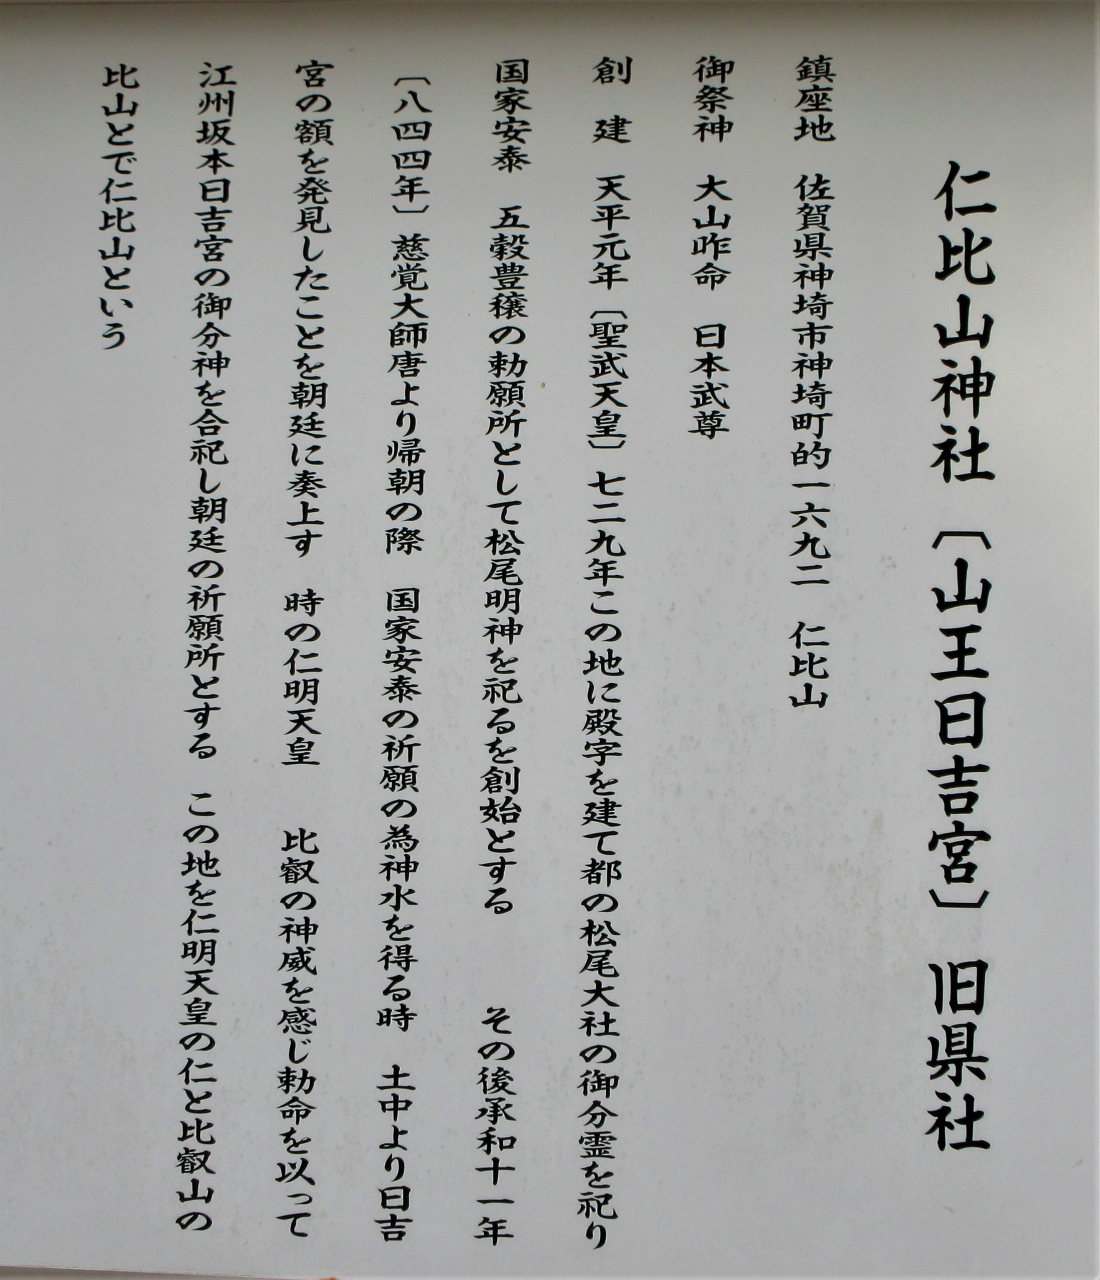 仁比山神社〔山王日吉宮〕旧県社
鎮座地　佐賀県神埼市神埼町的一六九二　仁比山
御祭神　大山咋命　日本武尊
創　建　天平元年〔聖武天皇〕七二九年この地に殿字を建て都の松尾大社の御分霊を祀り
国家安泰　五穀豊穣の勅願所として松尾明神を祀るを創始とする　　　その後承和十一年
〔八四四年〕慈覚大師唐より帰朝の際　国家安泰の祈願の為神水を得る時　土中より日吉
宮の額を発見したことを朝廷に奏上す　時の仁明天皇　　比叡の神威を感じ勅命を以って
江州坂本日吉宮の御分神を合祀し朝廷の祈願所とする　この地を仁明天皇の仁と比叡山の
比山とで仁比山という